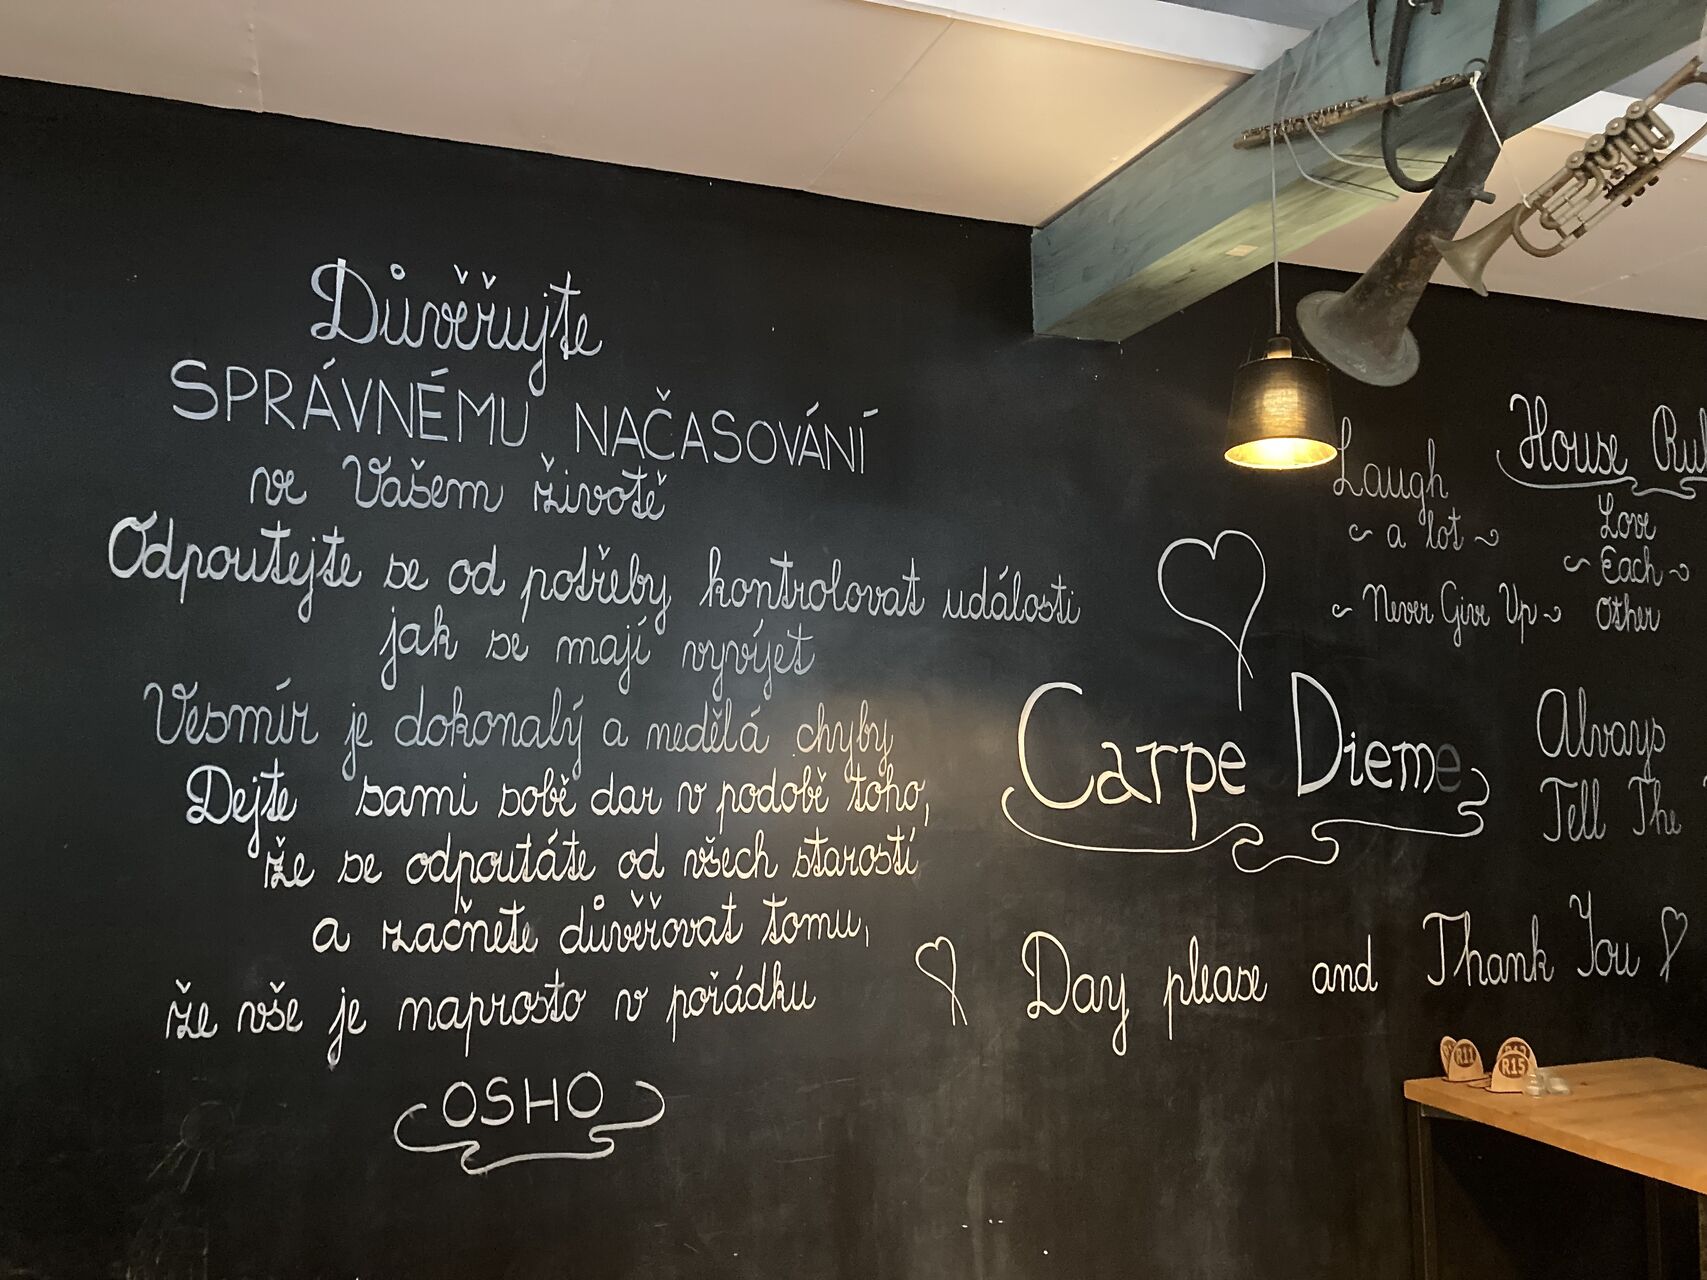 Důvěřujte
SPRÁVNÉMU NAČASOVÁNÍ
ve Vašem životě
Odpoutejte se od potřeby kontrolovat události
jak se mají vyvíjet
Vesmír je dokonalý a nedělá chyby
Dejte sami sobě dar v podobě toho,
že se odpoutáte od všech starostí
a začnete důvěřovat tomu,
že vše je naprosto v pořádku
OSHO
Carpe Diem
Day please and Thank You
Laugh
a lot
Never Give Up
House
Love
Each
Other
Always
Tell The
R11
R15